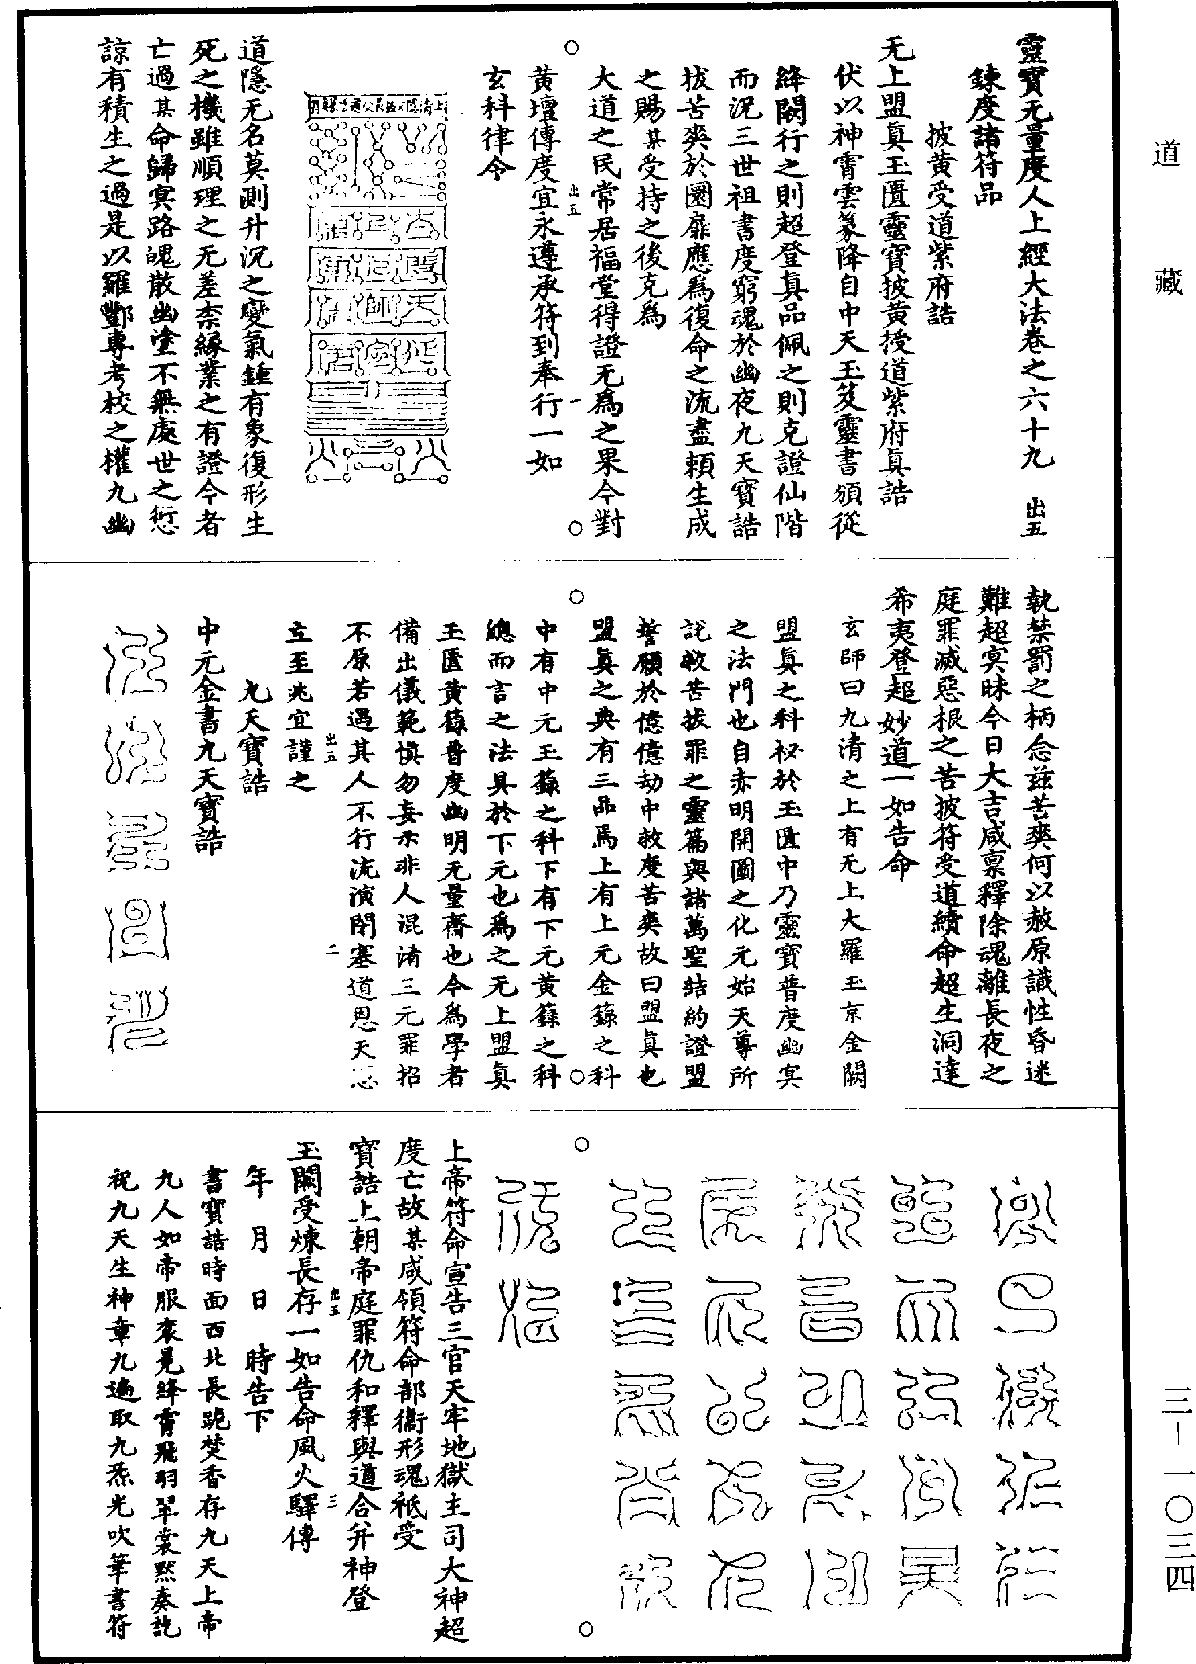 道藏
靈寶无量度人上經大法卷之六十九 出五
鍊度諸符品
披黄受道紫府誥
无上盟真玉匱靈寶披黄授道紫府真誥
伏以神霄雲篆降自中天玉笈靈書頒從
絳闕行之則超登真品佩之則克證仙階
而況三世祖書度窮魂於幽夜九天寶誥
拔苦爽於圜扉應為復命之流盡賴生成
之賜某受持之後克為
大道之民常居福堂得證无為之果今對
出五 一
黄壇傳度宜永遵承符到奉行一如
玄科律令
道隱无名莫測升沉之變氣鍾有象復形生
死之機雖順理之无差柰緣業之有證今者
亡過某命歸冥路魄散幽堂不無處世之愆
諒有積生之過是以羅酆專考校之權九幽
執禁罰之柄念茲苦爽何以赦原識性昏迷
難超冥昧今日大吉咸禀釋除魂離長夜之
庭罪滅惡根之苦披符受道續命超生洞達
希夷登超妙道一如告命
玄師曰九清之上有无上大羅玉京金闕
盟真之科祕於玉匱中乃靈寶普度幽冥
之法門也自赤明開圖之化元始天尊所
說救苦拔罪之靈篇與諸萬聖結約證盟
誓願於億億劫中救度苦爽故曰盟真也
盟真之典有三品焉上有上元金籙之科
中有中元玉籙之科下有下元黄籙之科
總而言之法具於下元也為之无上盟真
玉匱黄籙普度幽明无量齋也今為學者
備出儀範慎勿妄示非人混淆三元罪招
不原若遇其人不行流演閉塞道恩天愆
出五 二
立至兆宜謹之
九天寶誥
中元金書九天寶誥
上帝符命宣告三官天牢地獄主司大神超
度亡故某咸領符命部衛形魂祗受
寶誥上朝帝庭罪仇和釋與道合并神登
出五 三
玉闕受煉長存一如告命風火驛傳
年 月 日 時告下
書寶誥時面西北長跪焚香存九天上帝
九人如帝服衮冕絳霄飛羽翠裳默奏訖
祝九天生神章九遍取九炁光吹筆書符
三-一〇三四